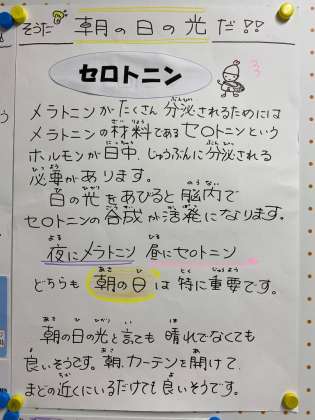 そうだ 朝の日の光だ!!
セロトニン
メラトニンが たくさん 分泌されるためには
メラトニンの材料であるセロトニンという
ホルモンが日中、じゅうぶんに分泌される
必要があります。
日の光をあびると脳内で
セロトニンの合成が活発になります。
夜にメラトニン 昼にセロトニン
どちらも 朝の日 は 特に重要です。
朝の日の光と言ても 晴れでなくても
良いそうです。朝、カーテンを開けて、
まどの近くにいるだけでも良いそうです。